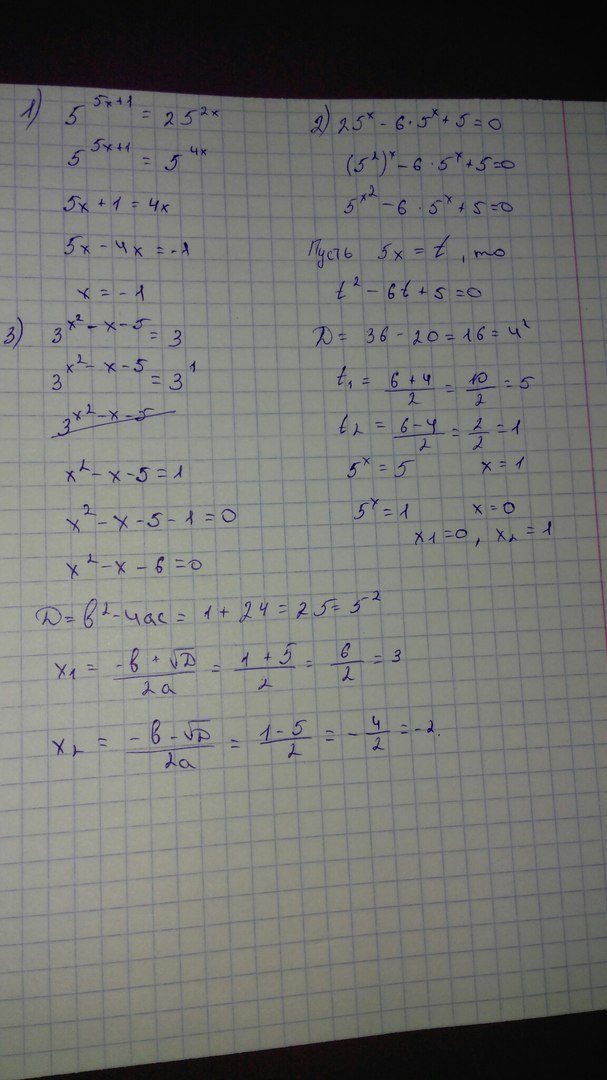 1) 5^{5x+1} = 25^{2x}
5^{5x+1} = 5^{4x}
5x + 1 = 4x
5x - 4x = -1
x = -1
2) 25^x - 6 · 5^x + 5 = 0
(5^2)^x - 6 · 5^x + 5 = 0
5^{x^2} - 6 · 5^x + 5 = 0
Пусть 5x = t, то
t^2 - 6t + 5 = 0
D = 36 - 20 = 16 = 4^2
t_1 = \frac{6+4}{2} = \frac{10}{2} = 5
t_2 = \frac{6-4}{2} = \frac{2}{2} = 1
5^x = 5 x = 1
5^x = 1 x = 0
x_1 = 0, x_2 = 1
3) 3^{x^2-x-5} = 3
3^{x^2-x-5} = 3^1
3^{x^2-x-5}
x^2 - x - 5 = 1
x^2 - x - 5 - 1 = 0
x^2 - x - 6 = 0
D = b^2 - 4ac = 1 + 24 = 25 = 5^2
x_1 = \frac{-b + √D}{2a} = \frac{1+5}{2} = \frac{6}{2} = 3
x_2 = \frac{-b - √D}{2a} = \frac{1-5}{2} = -\frac{4}{2} = -2.